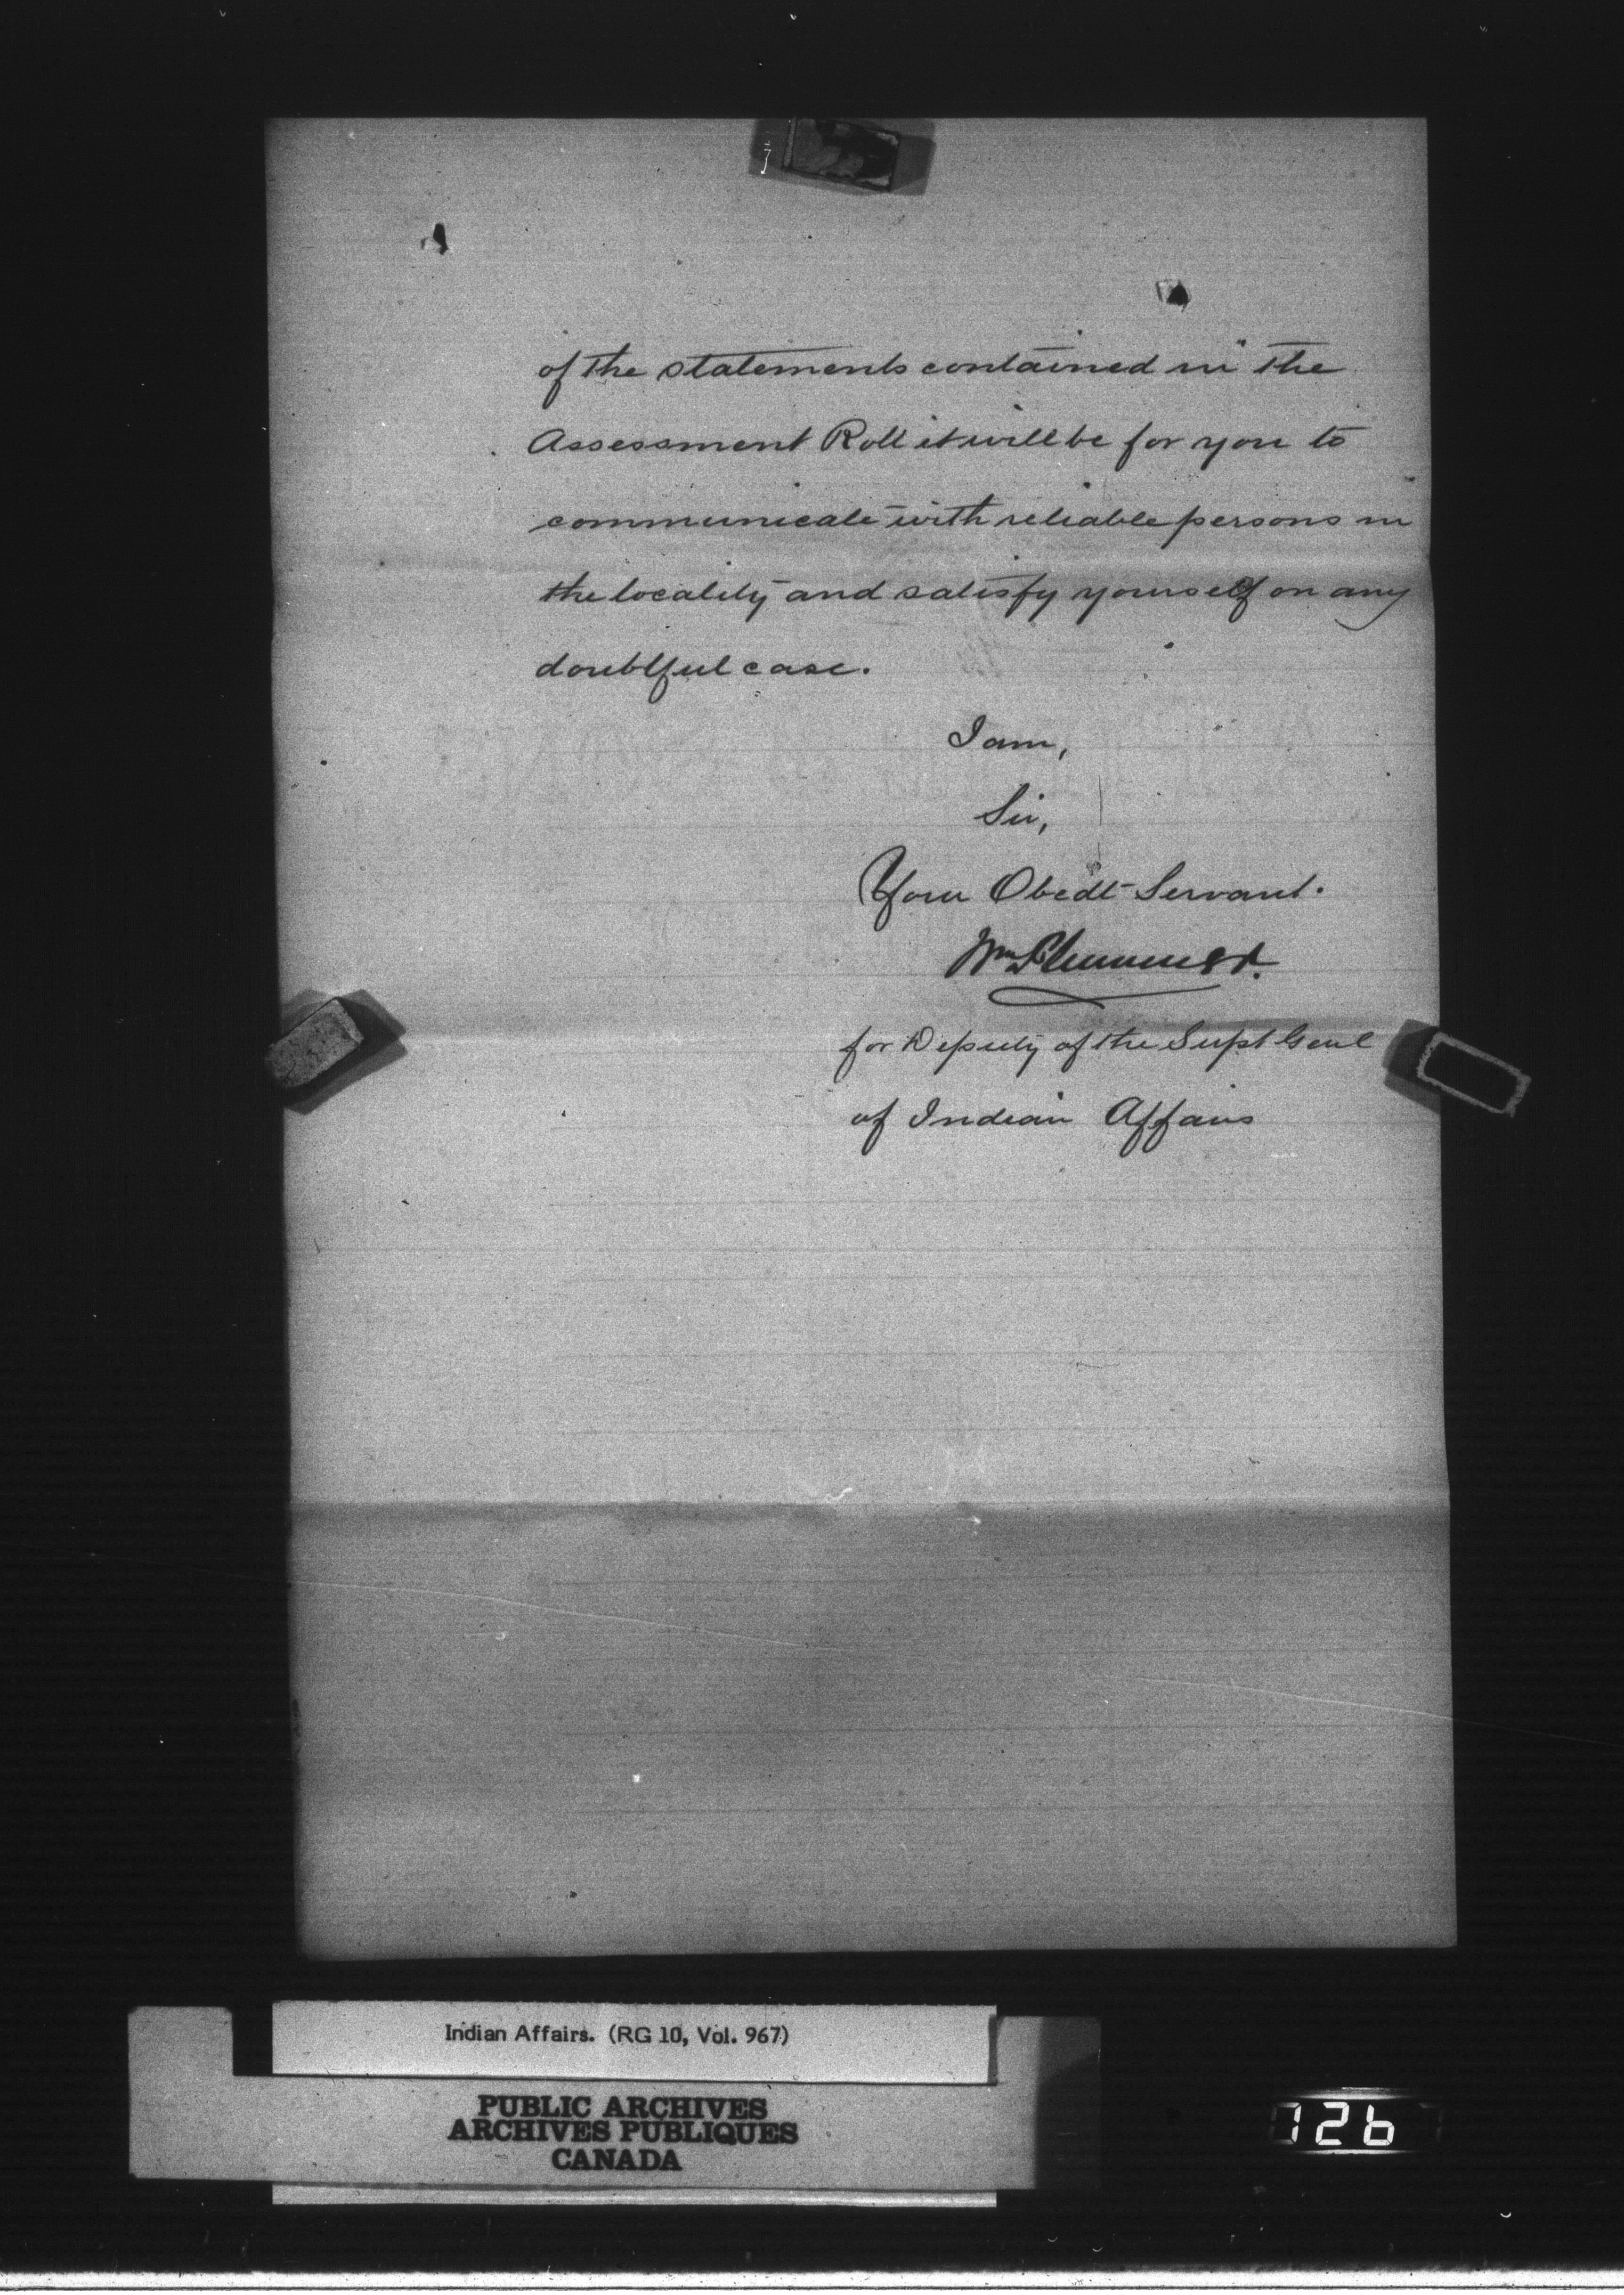 of the statements contained in the
Assessment Roll it will be for you to
communicate with reliable persons in
the locality and satisfy yourself on any
doubtful case.
I am,
Sir,
Your Obedt Servant.
Wm Plummer.
for Deputy of the Supt Genl
of Indian Affairs
Indian Affairs. (RG 10, Vol. 967)
PUBLIC ARCHIVES
ARCHIVES PUBLIQUES
CANADA
126